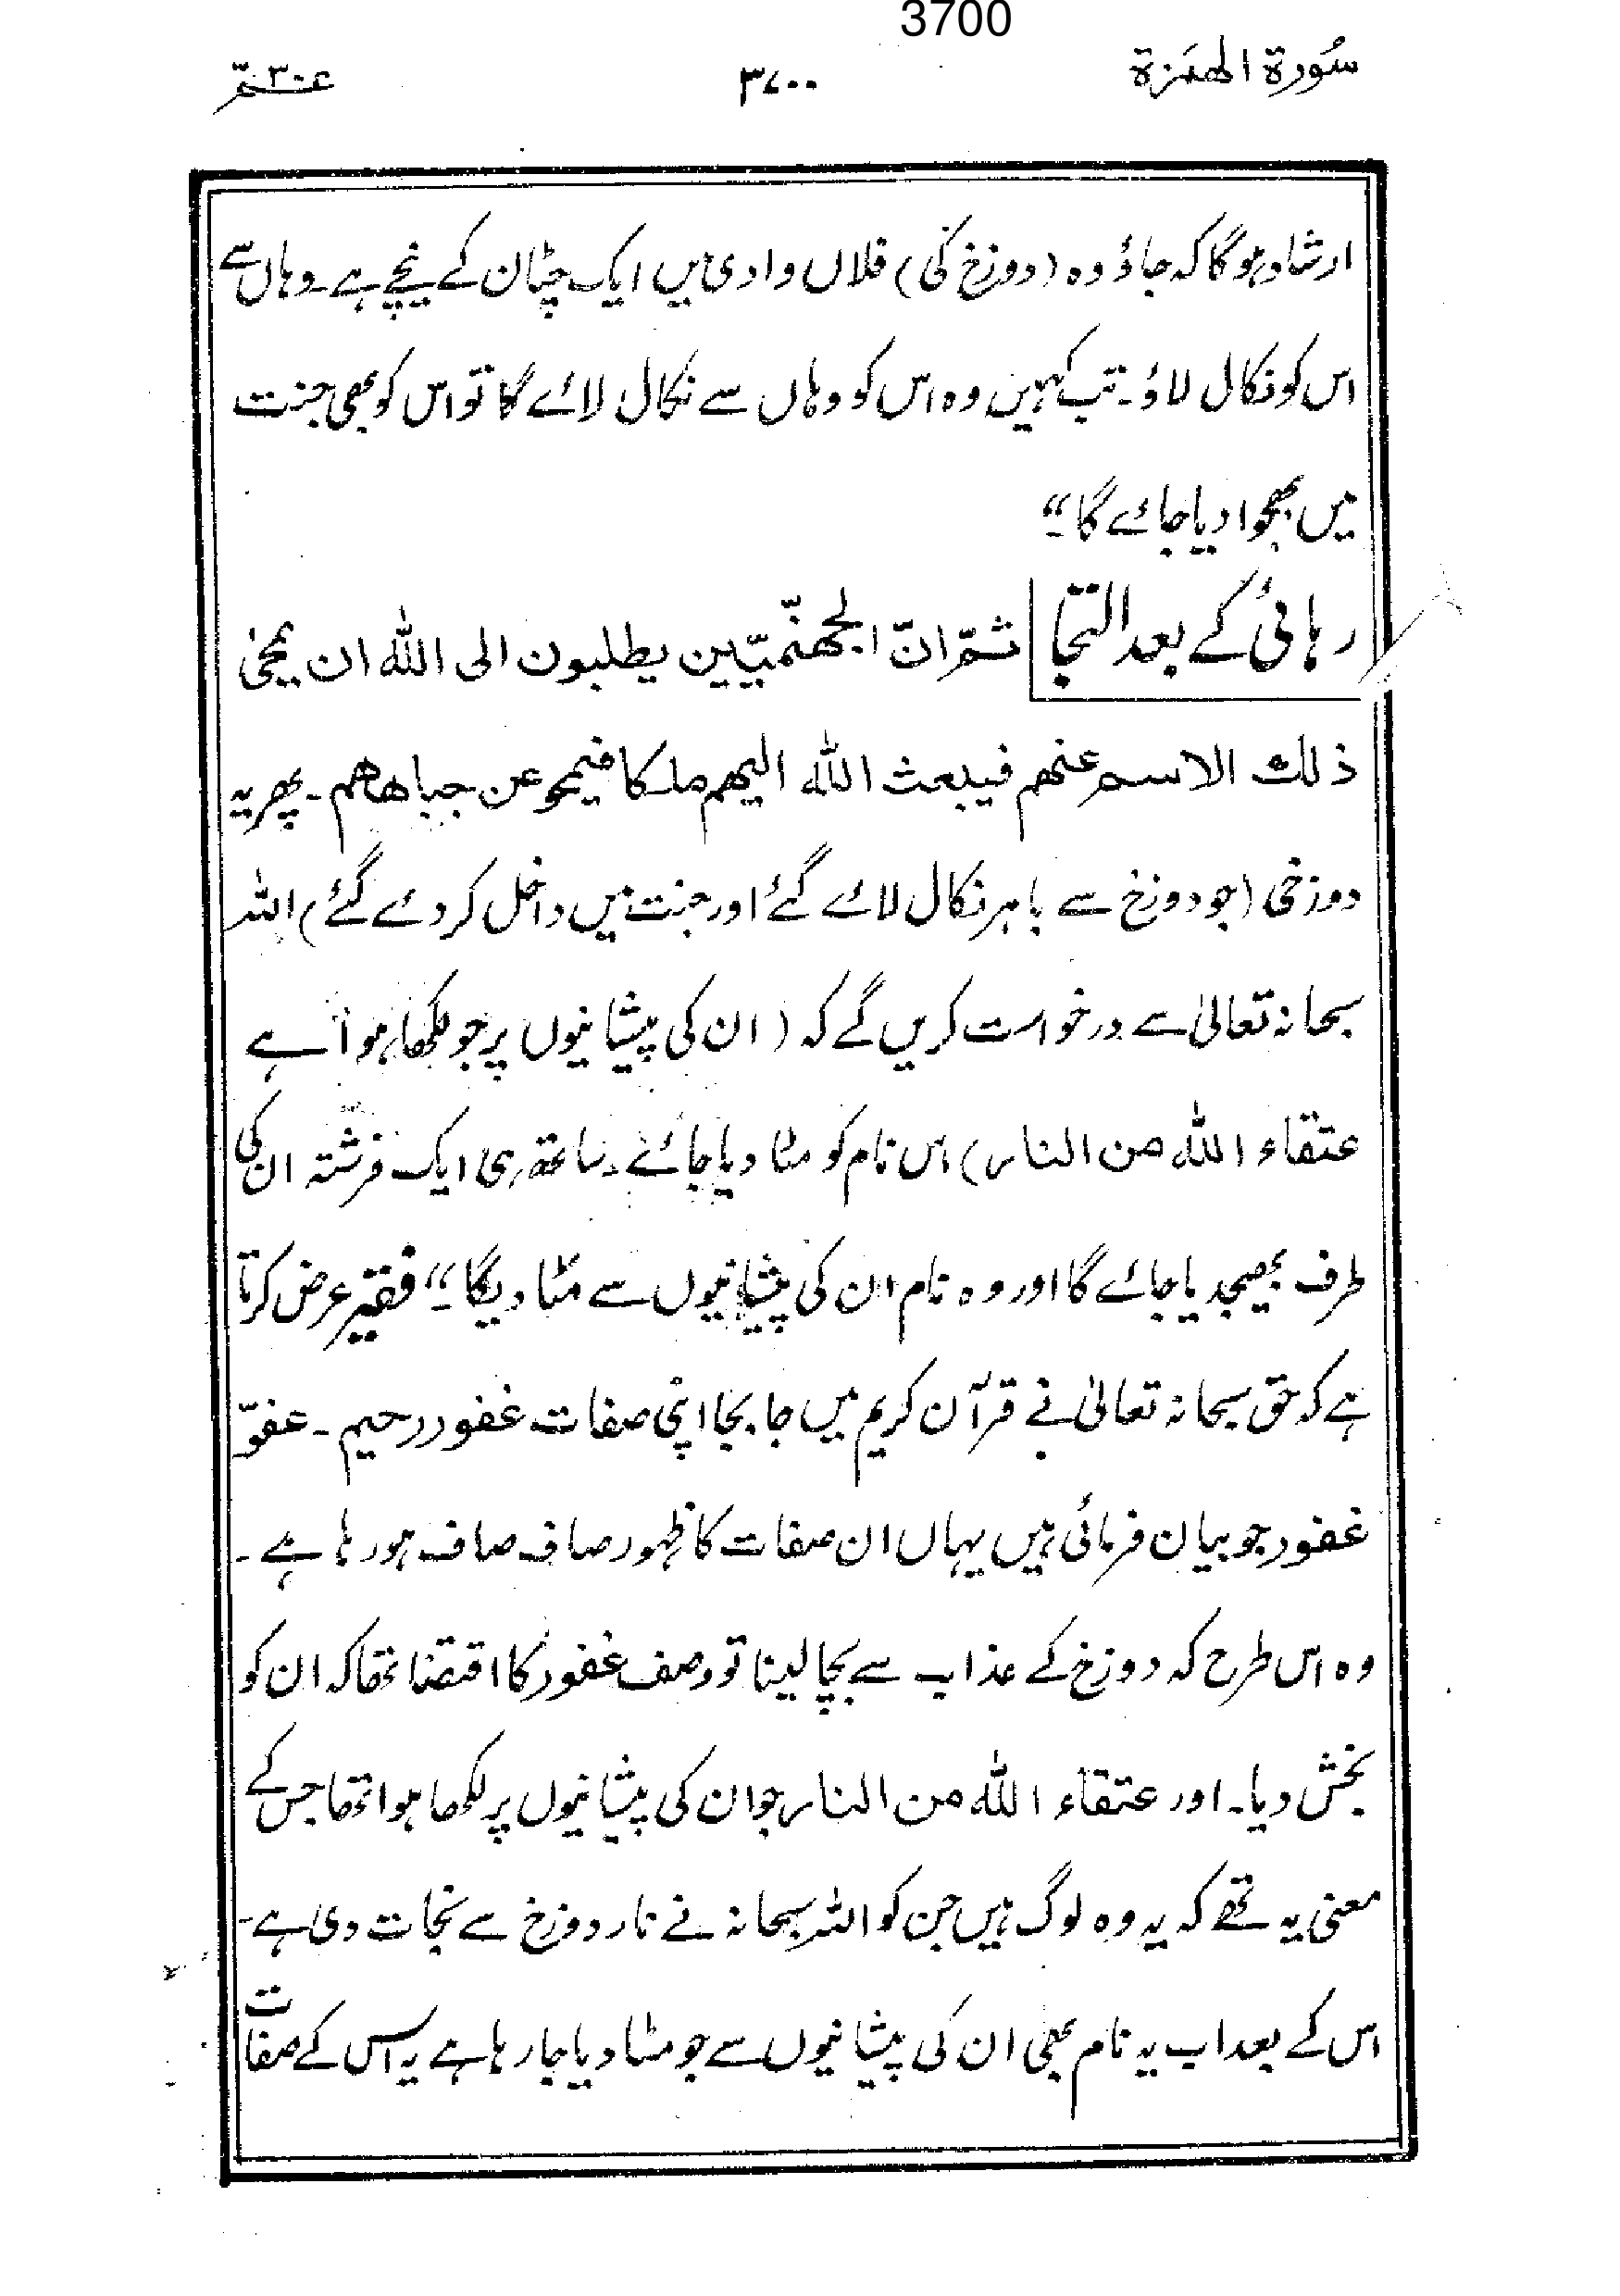 3700
سُورة الهمَزة ۳۷۰۰ عمّ ۳۰
ارشاد ہوگا کہ جاؤ وہ (دوزخ کی) فلاں وادی میں ایک چٹان کے نیچے ہے۔ وہاں سے
اس کو نکال لاؤ۔ تب کہیں وہ اس کو وہاں سے نکال لائے گا تو اس کو بھی جنت
میں بھجوا دیا جائے گا۔“
رہائی کے بعد التجا ثمّ انّ الجھنّمیّین یطلبون الی اللہ ان یمحیٰ
ذلك الاسم عنھم فیبعث اللہ الیھم ملکا فیمحو عن جباھھم۔ پھر یہ
دوزخی (جو دوزخ سے باہر نکال لائے گئے اور جنت میں داخل کر دے گئے) اللہ
سبحانہ تعالیٰ سے درخواست کریں گے کہ (ان کی پیشانیوں پر جو لکھا ہوا ہے
عتقاء اللہ من النار) اس نام کو مٹا دیا جائے۔ ساتھ ہی ایک فرشتہ ان کی
طرف بھیجدیا جائے گا اور وہ نام ان کی پیشانیوں سے مٹا دیگا۔“ فقیر عرض کرتا
ہے کہ حق سبحانہ تعالیٰ نے قرآن کریم میں جا بجا اپنی صفات غفور رحیم۔ عفوّ
غفور جو بیان فرمائی ہیں یہاں ان صفات کا ظہور صاف صاف ہو رہا ہے۔
وہ اس طرح کہ دوزخ کے عذاب سے بچا لینا تو وصف غفور کا اقتضا تھا کہ ان کو
بخش دیا۔ اور عتقاء اللہ من النار جو ان کی پیشانیوں پر لکھا ہوا تھا جس کے
معنی یہ تھے کہ یہ وہ لوگ ہیں جن کو اللہ سبحانہ نے نار دوزخ سے نجات دی ہے۔
اس کے بعد اب یہ نام بھی ان کی پیشانیوں سے جو مٹا دیا جا رہا ہے یہ اس کے صفات